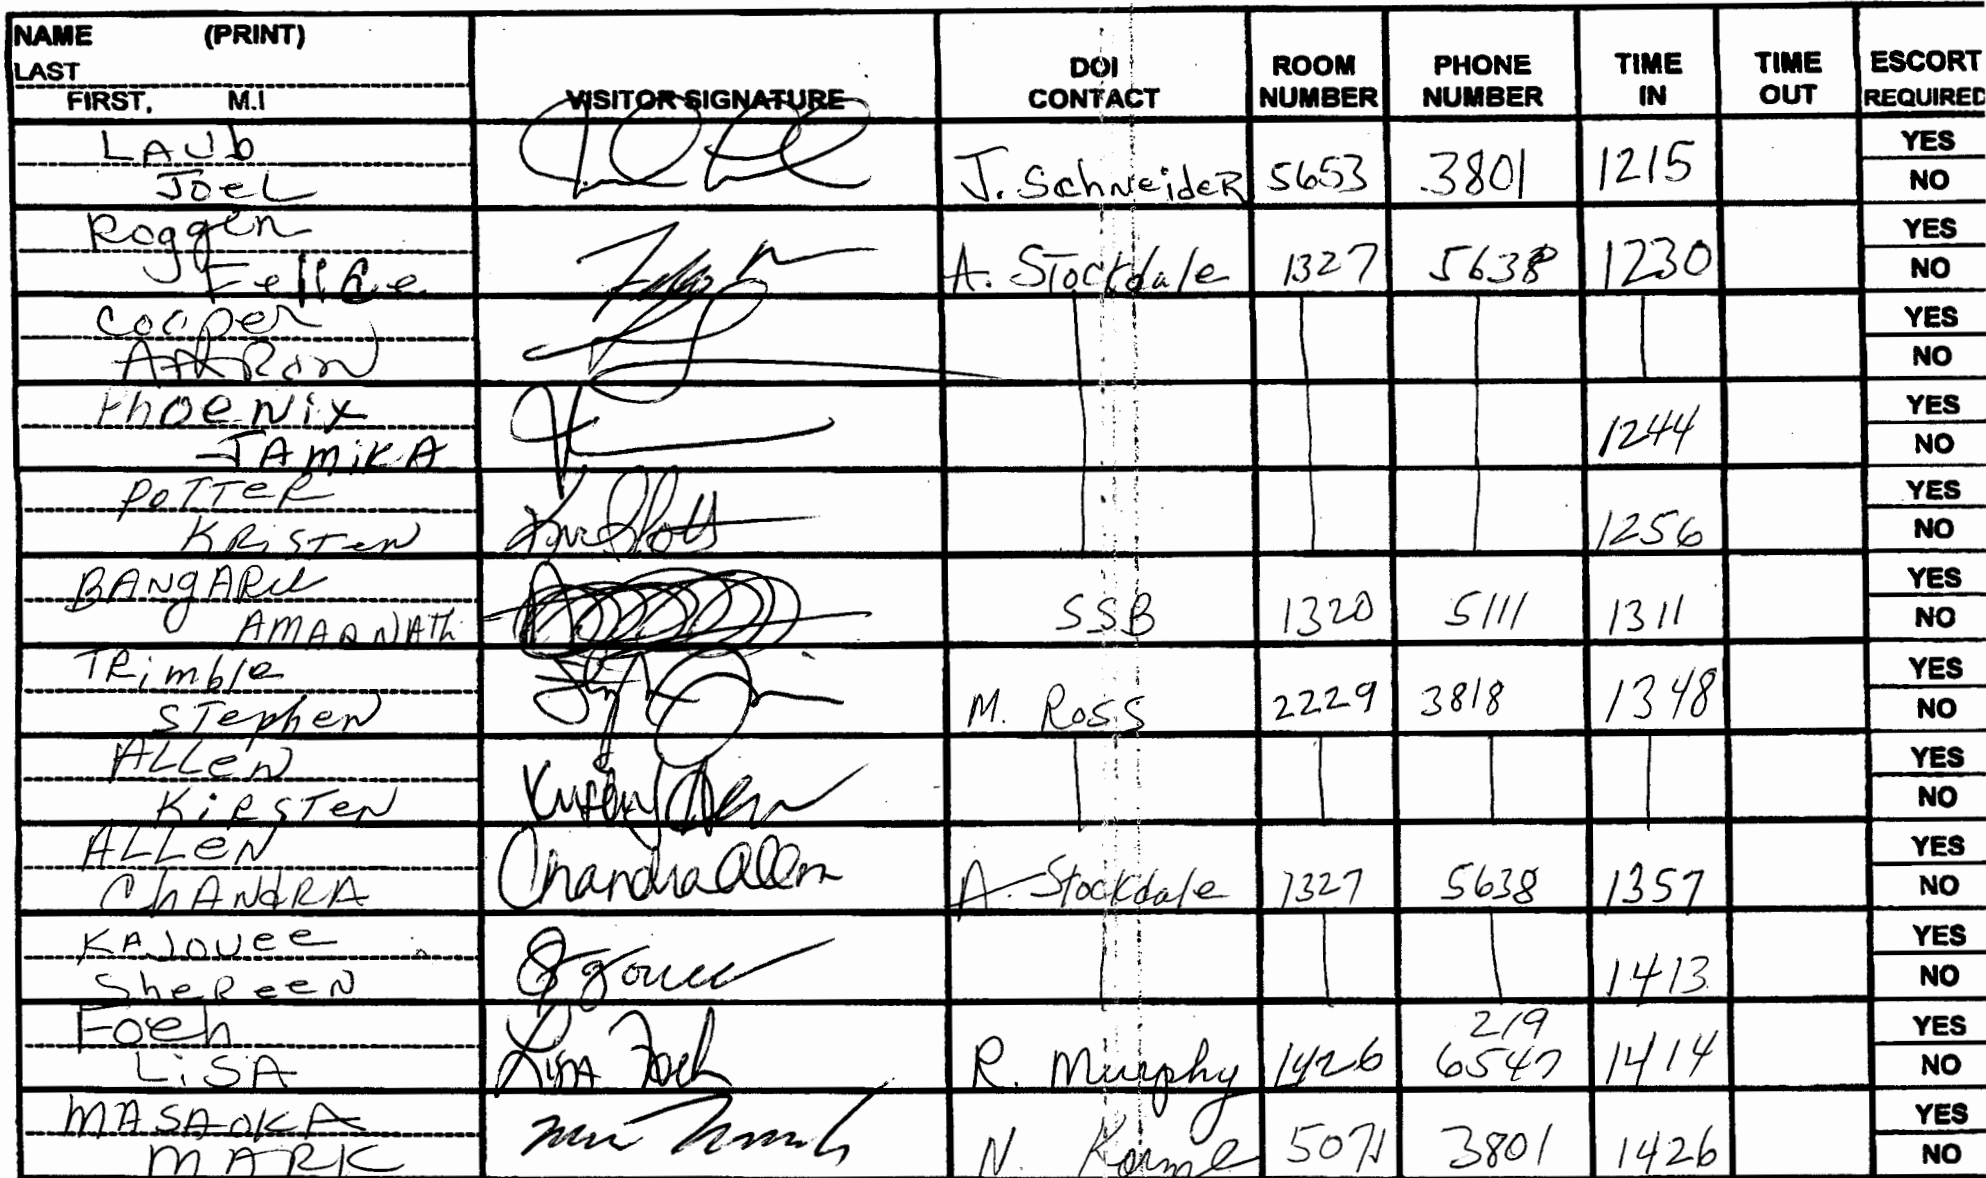 NAME (PRINT)
LAST
FIRST, M.I
VISITOR SIGNATURE
DOI CONTACT
ROOM NUMBER
PHONE NUMBER
TIME IN
TIME OUT
ESCORT REQUIRED
LAUb
JOEL J. SchNeideR 5653 3801 1215 YES NO
Roggen
Felice A. Stockdale 1327 5638 1230 YES NO
Cooper
AARON YES NO
PhOeNix
JAMiKA 1244 YES NO
POTTER
KRiSTeN 1256 YES NO
BANgARU
AMARNATh SSB 1320 5111 1311 YES NO
TRimble
STephen M. Ross 2229 3818 1348 YES NO
ALLeN
KiRSTeN YES NO
ALLeN
ChANdRA Chandra Allen A. Stockdale 1327 5638 1357 YES NO
KAJOUee
SheReeN 1413 YES NO
Foeh
LiSA Lisa Foeh R. Murphy 1426 219 6547 1414 YES NO
MASAOKA
MARK N. 5071 3801 1426 YES NO